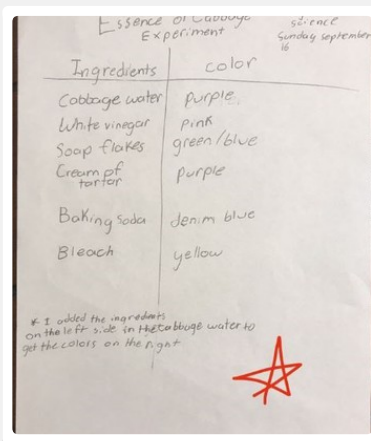 Essence of Cabbage
Experiment
science
Sunday september
16
Ingredients
color
Cabbage water purple
White vinegar pink
Soap flakes green/blue
Cream of
tartar purple
Baking soda denim blue
Bleach yellow
* I added the ingredients
on the left side in the cabbage water to
get the colors on the right